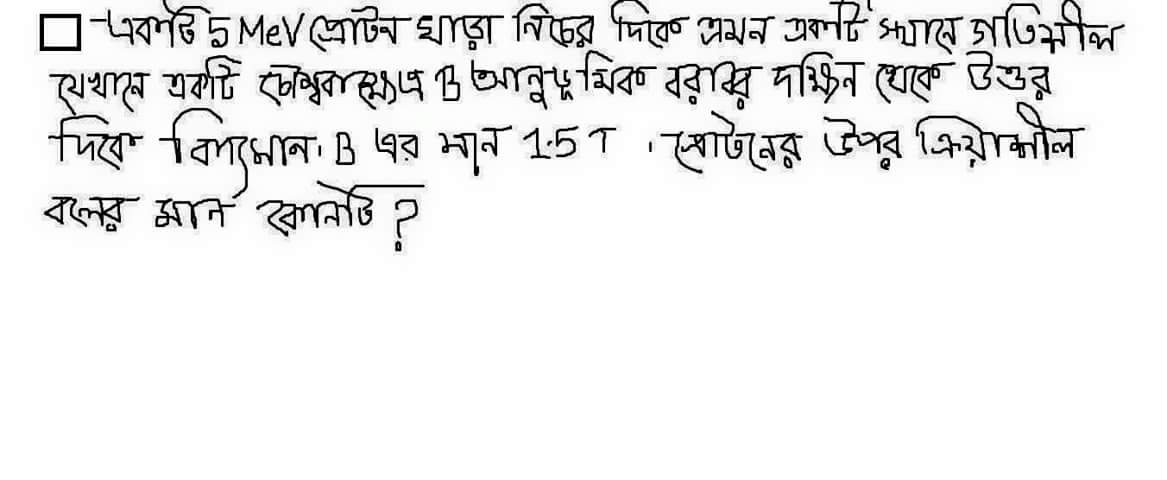 একটি 5 MeV প্রোটন খাড়া নিচের দিকে এমন একটি স্থানে গতিশীল
যেখানে একটি চৌম্বকক্ষেত্র B আনুভূমিক বরাবর দক্ষিন থেকে উত্তর
দিকে বিদ্যমান। B এর মান 1.5 T . প্রোটনের উপর ক্রিয়াশীল
বলের মান কোনটি ?